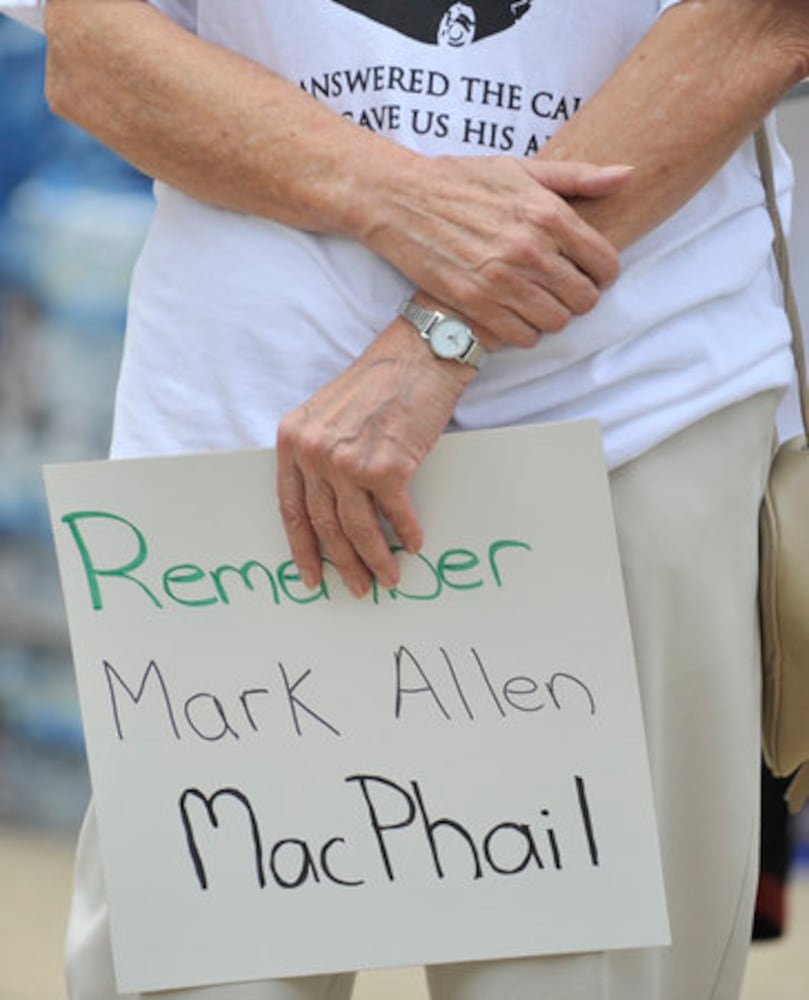 ANSWERED THE
US HIS
Remember
Mark Allen
MacPhail